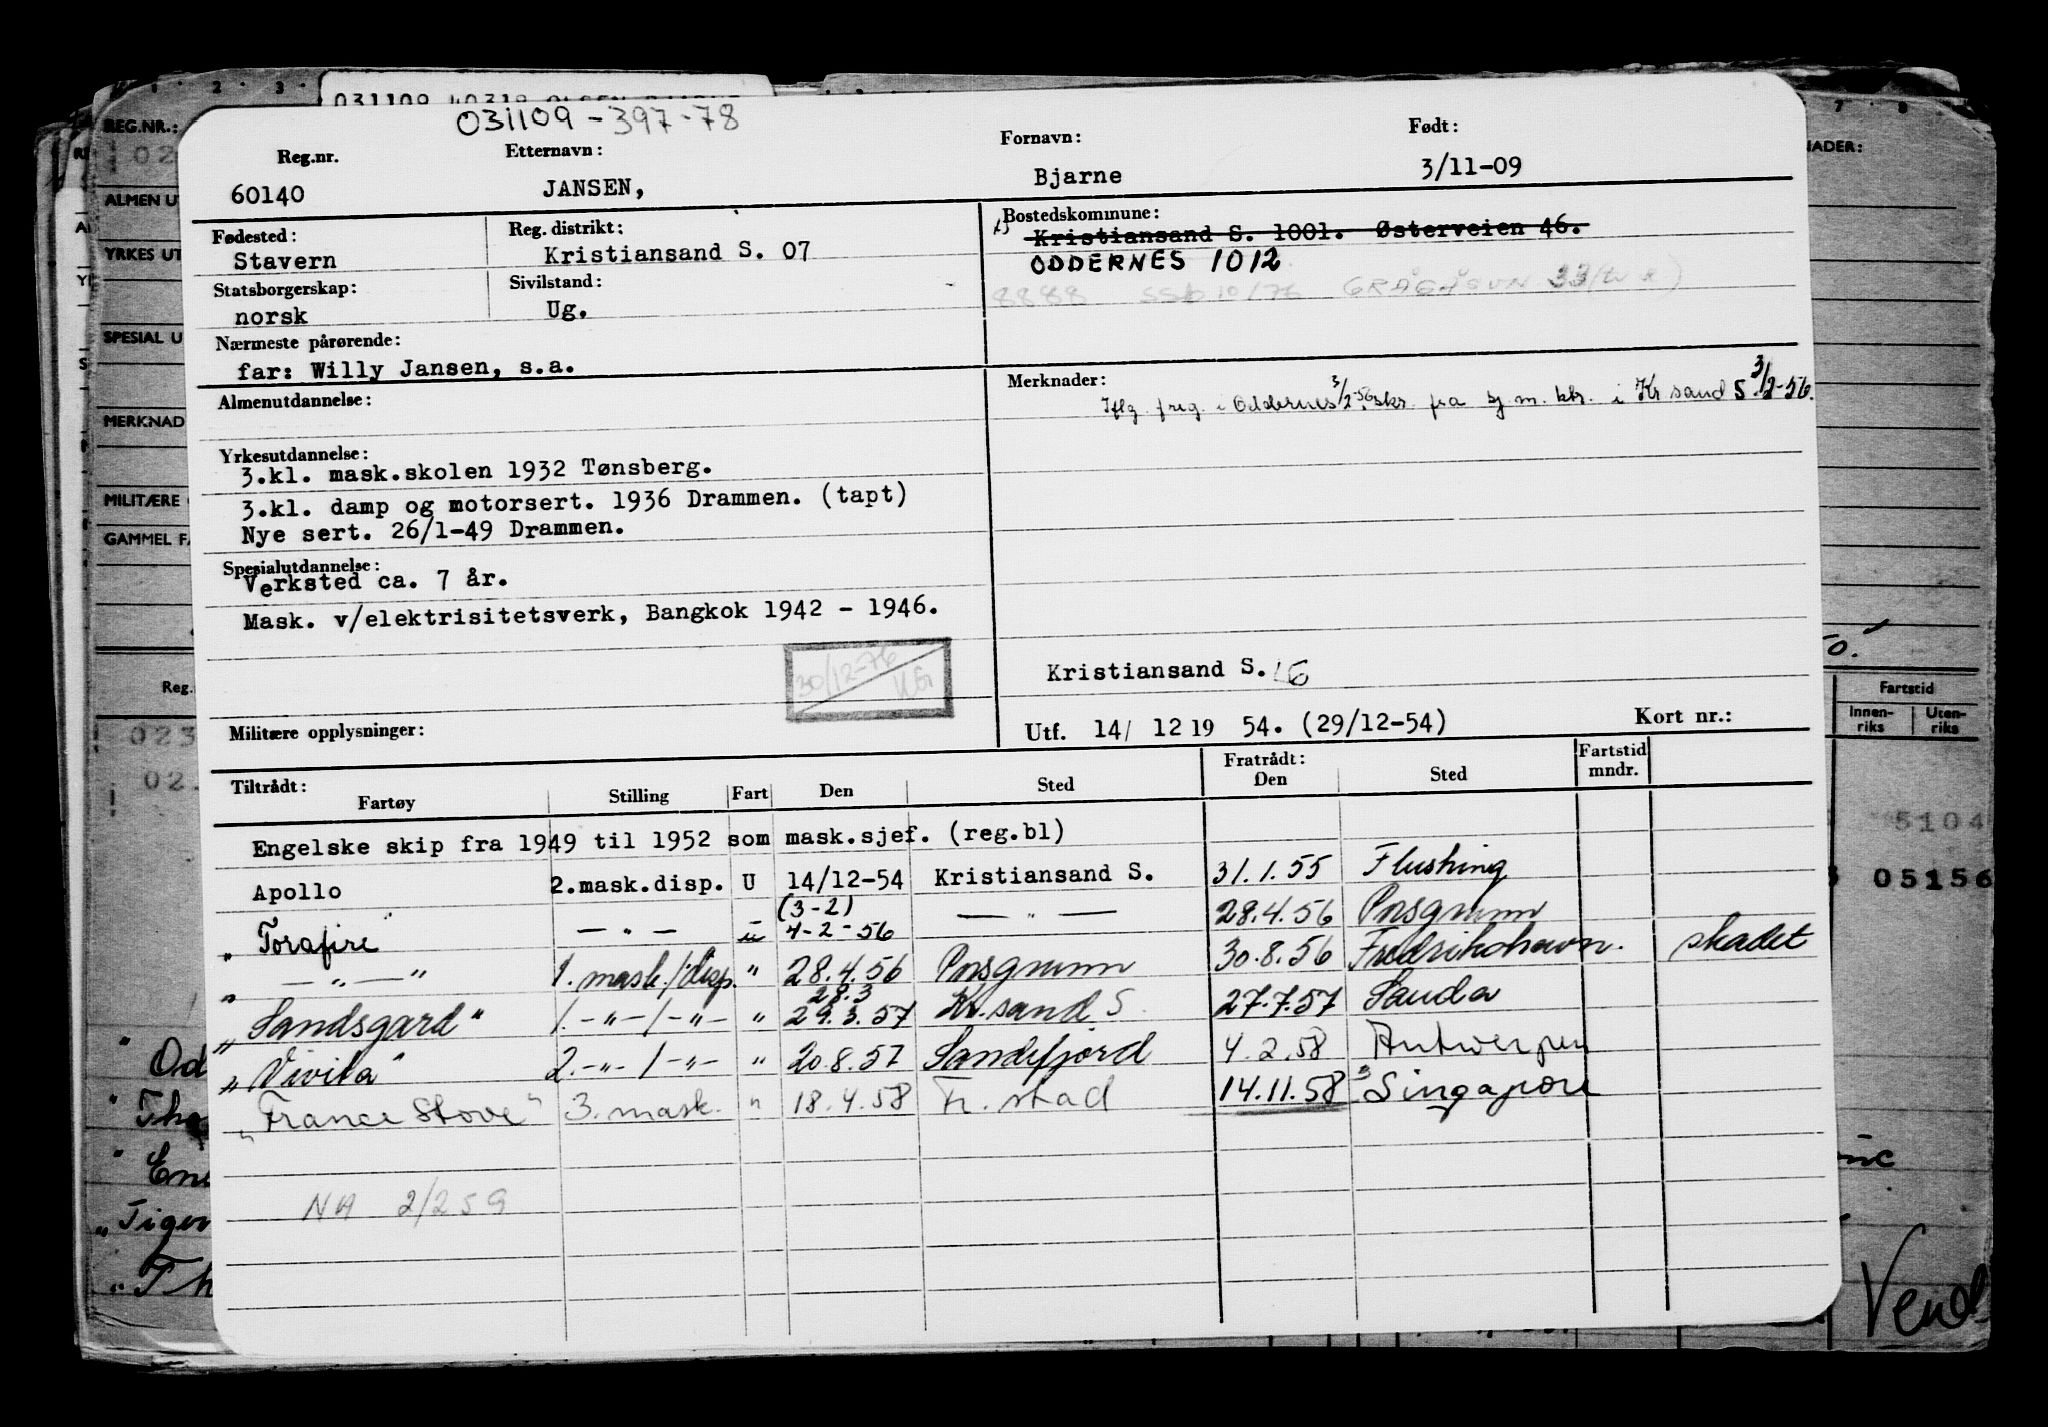 031109-397-78
Reg.nr. Etternavn: Fornavn: Født:
60140 JANSEN, Bjarne 3/11-09
Fødested: Reg. distrikt: Bostedskommune:
Stavern Kristiansand S. 07 Kristiansand S. 1001. Østerveien 46.
ODDERNES 1012
Statsborgerskap: Sivilstand:
norsk Ug.
8888
Nærmeste pårørende:
far: Willy Jansen, s.a.
Almenutdannelse: Merknader:
Iflg. freg. i Oddernes 3/2-56 skr. fra sj.m.ktr. i Kr sand S. 3/2-56.
Yrkesutdannelse:
3.kl. mask.skolen 1932 Tønsberg.
3.kl. damp og motorsert. 1936 Drammen. (tapt)
Nye sert. 26/1-49 Drammen.
Spesialutdannelse:
Verksted ca. 7 år.
Mask. v/elektrisitetsverk, Bangkok 1942 - 1946.
30/12-76
Kristiansand S.
Militære opplysninger: Utf. 14/ 12 19 54. (29/12-54) Kort nr.:
Tiltrådt: Fratrådt: Fartstid
Fartøy Stilling Fart Den Sted Den Sted mndr.
Engelske skip fra 1949 til 1952 som mask.sjef. (reg.bl)
Apollo 2.mask.disp. U 14/12-54 Kristiansand S. 31.1.55 Flushing
(3-2)
"Torafire — " — " 4-2-56 — " — 28.4.56 Porsgrunn
" — " — " 1. mask./disp. " 28.4.56 Porsgrunn 30.8.56 Fredrikshavn. skadet
28.3
"Sandsgard" 1. -"- / -"- " 29.3.57 Kr.sand S. 27.7.57 Sauda
"Vivita" 2. -"- / -"- " 20.8.57 Sandefjord 4.2.58 Antwerpen
"France Stove" 3. mask. " 18.4.58 Fr.stad 14.11.58 Singapore
NA 2/2 59
REG.NR.:
YRKES UT
SPESIAL U
MERKNAD
MILITÆRE
GAMMEL F
Fartstid
Innen-
riks
Uten-
riks
5104
05156